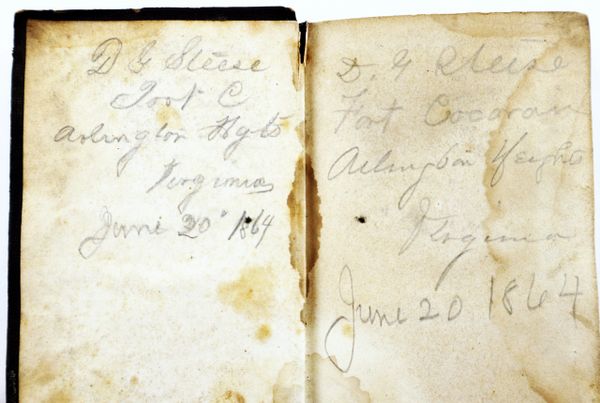 D G Steese
Fort C
Arlington Hgts
Virginia
June 20" 1864
D. G Steese
Fort Cocoran
Arlington Heights
Virginia
June 20 1864